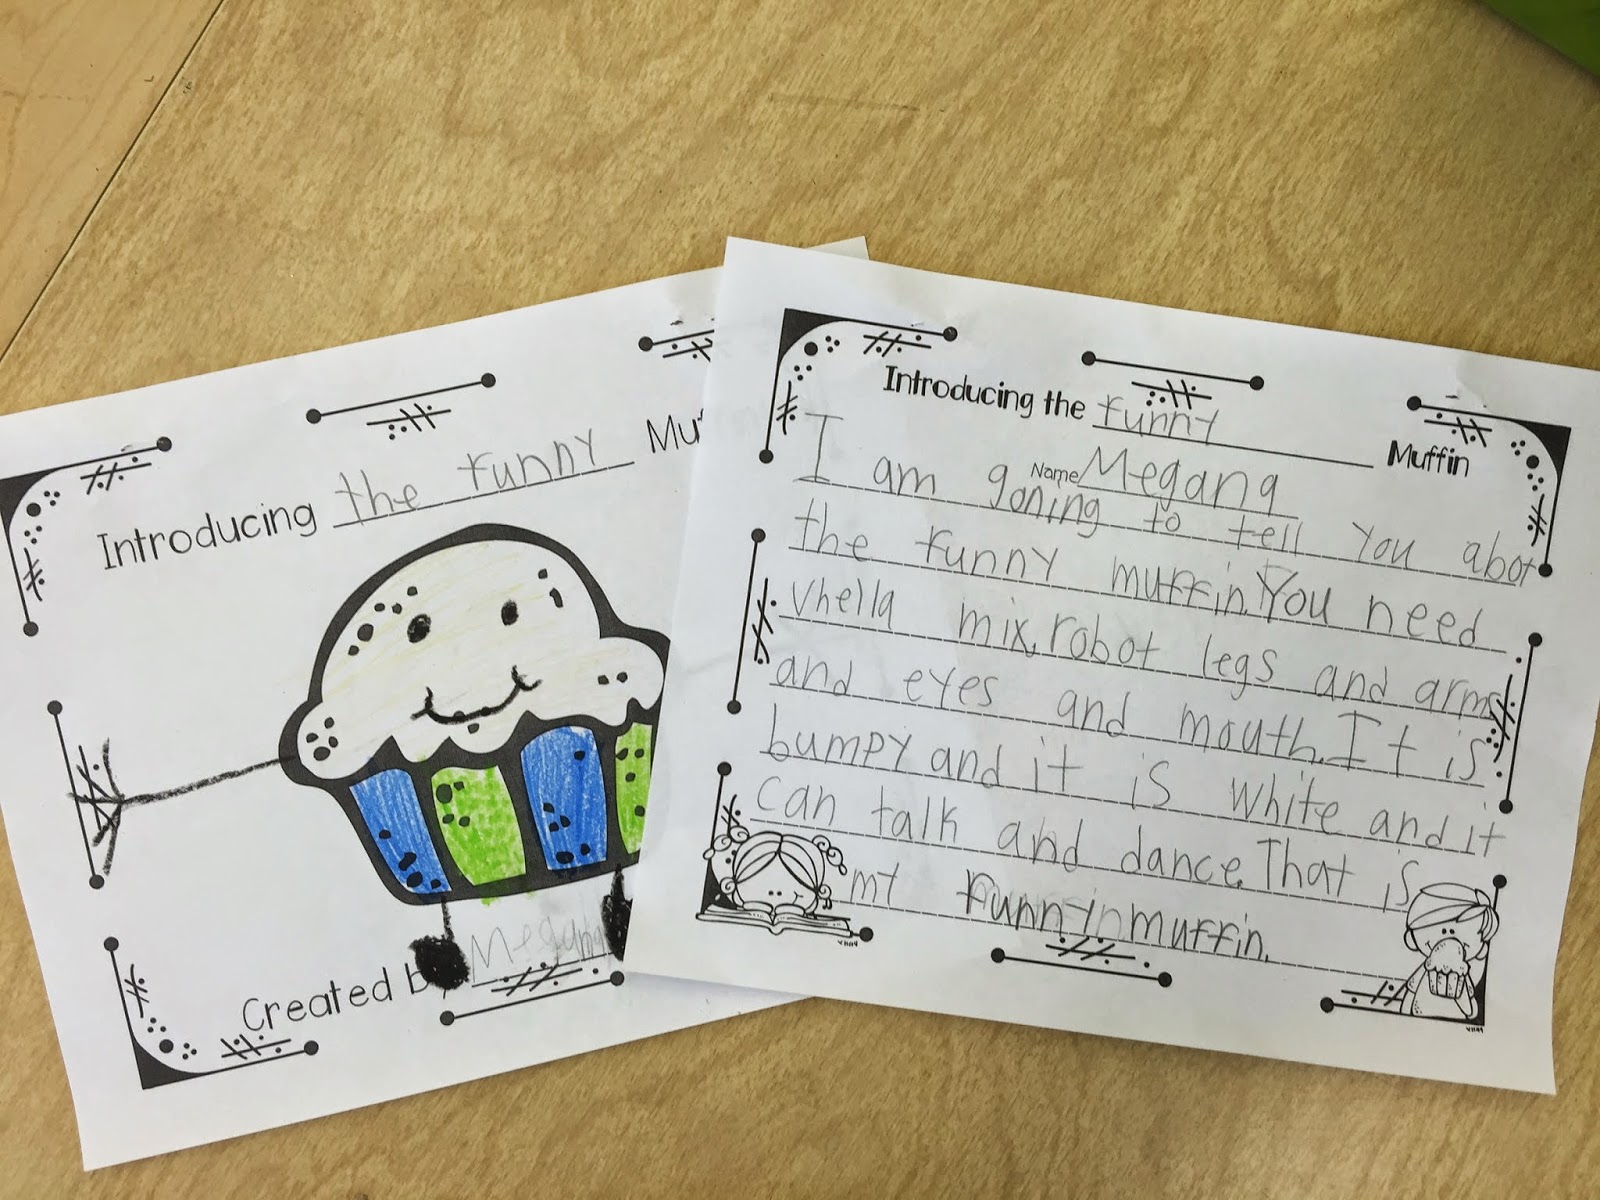 Introducing the funny Muf
Created b Megang
Introducing the funny Muffin
Name Megang
I am goning to tell you abot
the funny muffin. You need
vhella mix, robot legs and arms
and eyes and mouth. It is
bumpy and it is white and it
can talk and dance. That is
mt funny muffin.